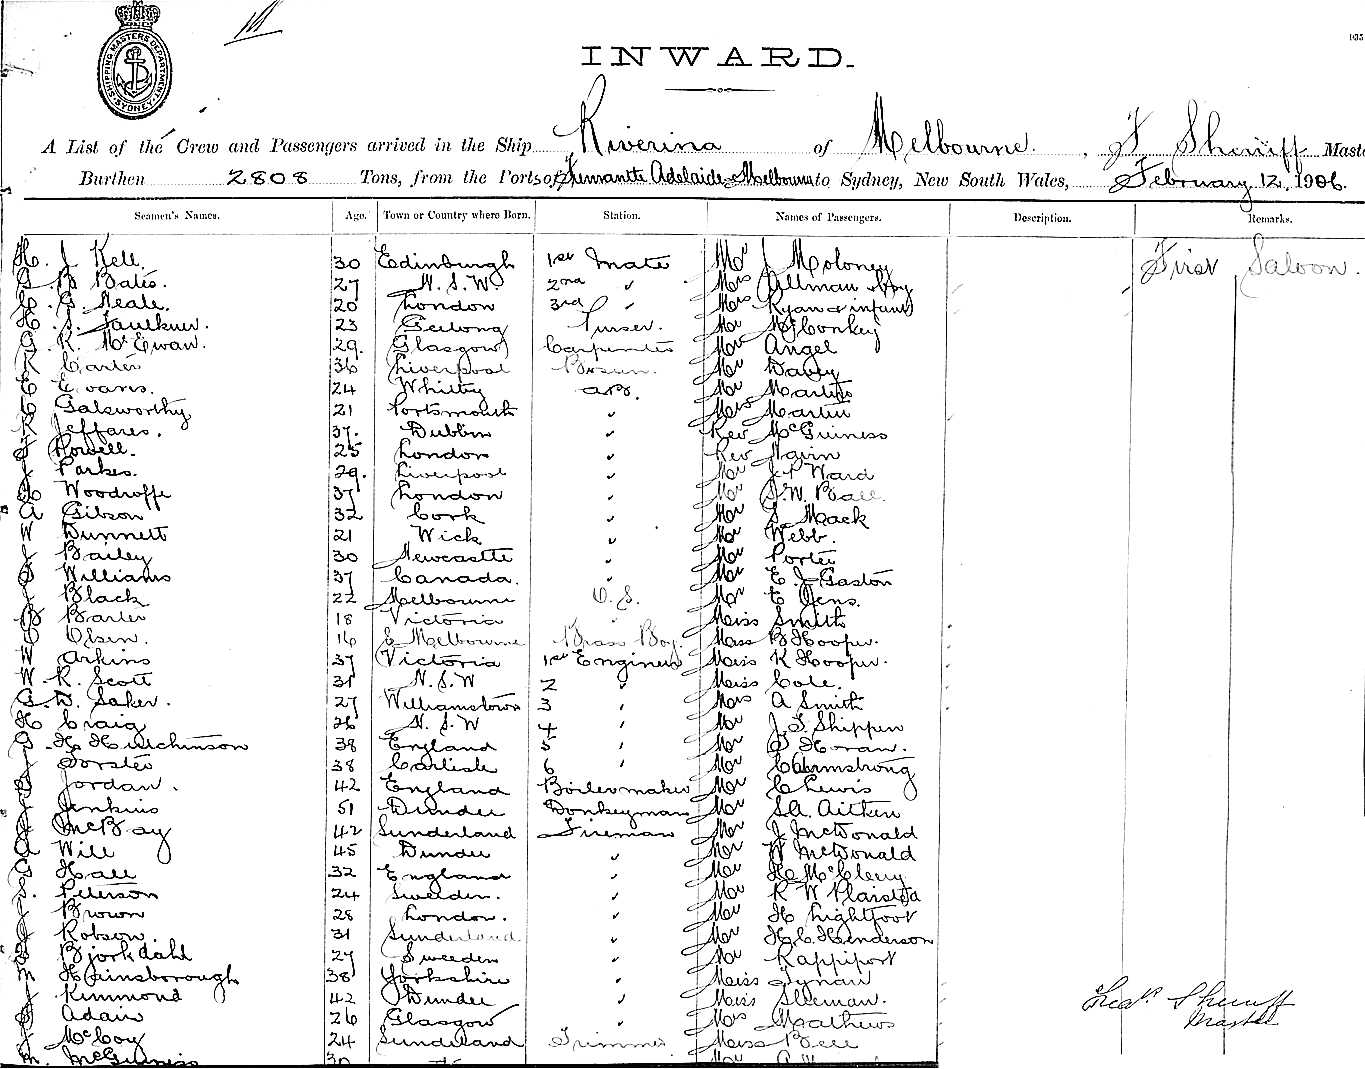 SHIPPING MASTERS DEPARTMENT SYDNEY
INWARD.
A List of the Crew and Passengers arrived in the Ship Riverina of Melbourne, F Sherriff Maste
Burthen 2808 Tons, from the Ports of Fremantle Adelaide & Melbourne to Sydney, New South Wales, February 12, 1906.
Seamen's Names. Age. Town or Country where Born. Station. Names of Passengers. Description. Remarks.
H. J Kell. 30 Edinburgh 1st Mate Mr J Moloney First Saloon.
G B Bates. 27 N.S.W 2nd " Mrs Allman & boy
C. G. Neale. 20 London 3rd " Mrs Ryan & infant
H. S. Faulkner. 23 Geelong Purser. Mr McConkey
G. K. McEwan. 29. Glasgow Carpenter Mr Angel
R Carter 36 Liverpool Bosun. Mr Davey
E Evans. 24 Whitby AB. Mr Martin
C Galsworthy 21 Portsmouth " Mrs Martin
R Jeffares. 37. Dublin " Rev McGuiness
J Powell. 25 London " Rev Mavin
J Parkes. 29. Liverpool " Mr J. P Ward
Woodroffe 37 London " Mr S.W. Ball.
A Gibson 32 Cork " Mr S. Mack
W Dunnett 21 Wick " Mr Webb.
J Bailey 30 Newcastle " Mr Porter
J Williams 37 Canada. " Mr E J Gaston
J Black 22 Melbourne O.S. Mr E Jens.
B Barter 18 Victoria " Miss Smith
O Olsen. 16 E Melbourne Brass Boy. Miss B Hooper.
W Arkins 37 Victoria 1st Engineer Miss K Hooper.
W. R. Scott 31 N.S.W 2 " Miss Cole.
G. W. Saker. 27 Williamstown 3 " Mrs A Smith
H Craig 26 N.S.W 4 " Mr J. F. Shippen
G. H Hutchinson 38 England 5 " Mr S Horan.
J Forster 38 Carlisle 6 " Mr C Armstrong
J Jordan. 42 England Boilermaker Mr C Lewis
J Jenkins 51 Dundee Donkeyman Mr S.A. Aitken
J McBay 42 Sunderland Fireman Mr J. McDonald
A Will 45 Dundee " Mr W McDonald
G Hall 32 England " Mr H. McCleery
Peterson 24 Sweden. " Mr R W Plaisted
J Brown 28 London. " Mr H Lightfoot
J Robson 31 Sunderland " Mr H.C. Henderson
Bjorkdahl 27 Sweden " Mr Rappiport
M Hainsborough 38 Yorkshire " Miss Tynan
J Kinmond 42 Dundee " Miss Sleeman.
J Adair 26 Glasgow " Mrs Mathews
J McCoy 24 Sunderland Trimmer Miss Bell
M. McGuiness 30
Sherriff
Master